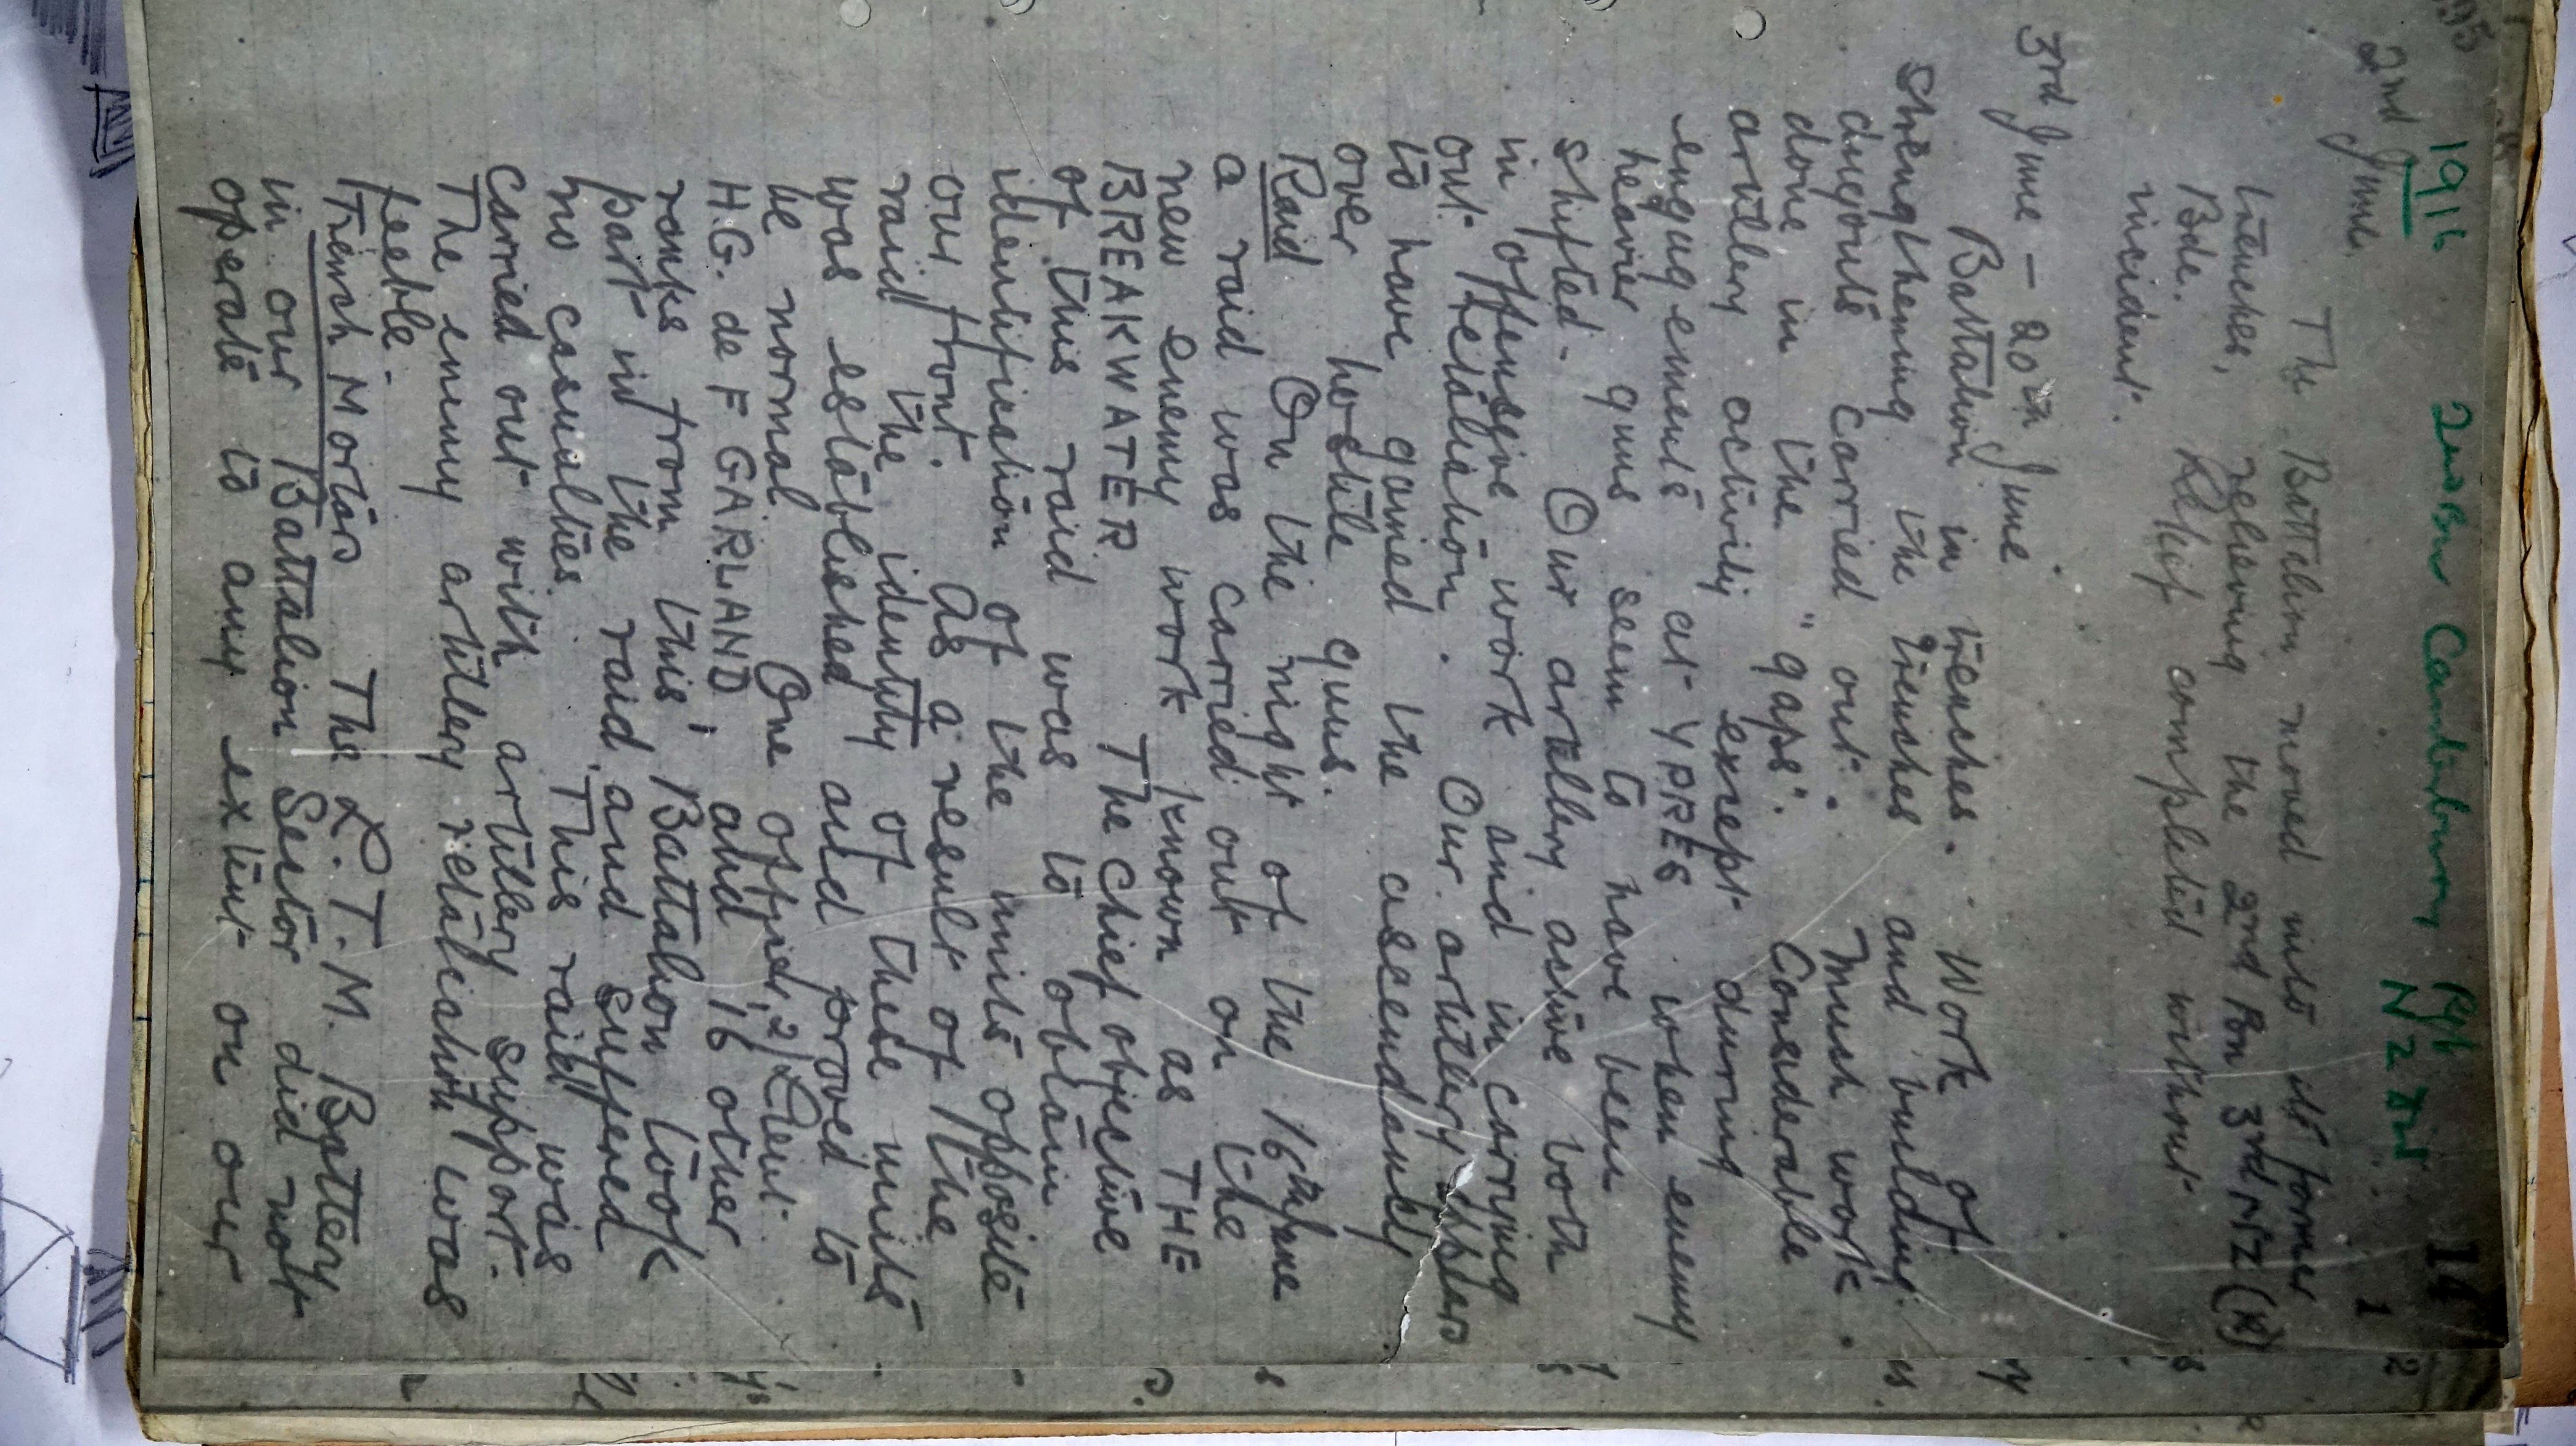 1916 2nd Bn Canterbury Rgt 14
N Z Inf. 1
2nd June.
The Battalion moved into its former
trenches, relieving the 2nd Bn 3rd NZ (R)
Bde. Relief completed without
incident.
3rd June – 20th June
Battalion in trenches. Work of
strengthening the trenches and building
dugouts carried out. Much work
done in the "gaps". Considerable
artillery activity except during
engagements at YPRES when enemy
heavier guns seem to have been
shifted. Our artillery active both
in offensive work and in carrying
out retaliation. Our artillery appears
to have gained the ascendancy
over hostile guns.
Raid On the night of the 16th June
a raid was carried out on the
new enemy work known as THE
BREAKWATER The Chief objective
of this raid was to obtain
identification of the units opposite
our front. As a result of the
raid the identity of these units
was established and proved to
be normal One officer, 2/Lieut.
H.G. de F GARLAND and 16 other
ranks from this Battalion took
part in the raid and suffered
no casualties. This raid was
carried out with artillery support.
The enemy artillery retaliation was
feeble.
Trench Mortars The L.T.M. Battery
in our Battalion Sector did not
operate to any extent on our